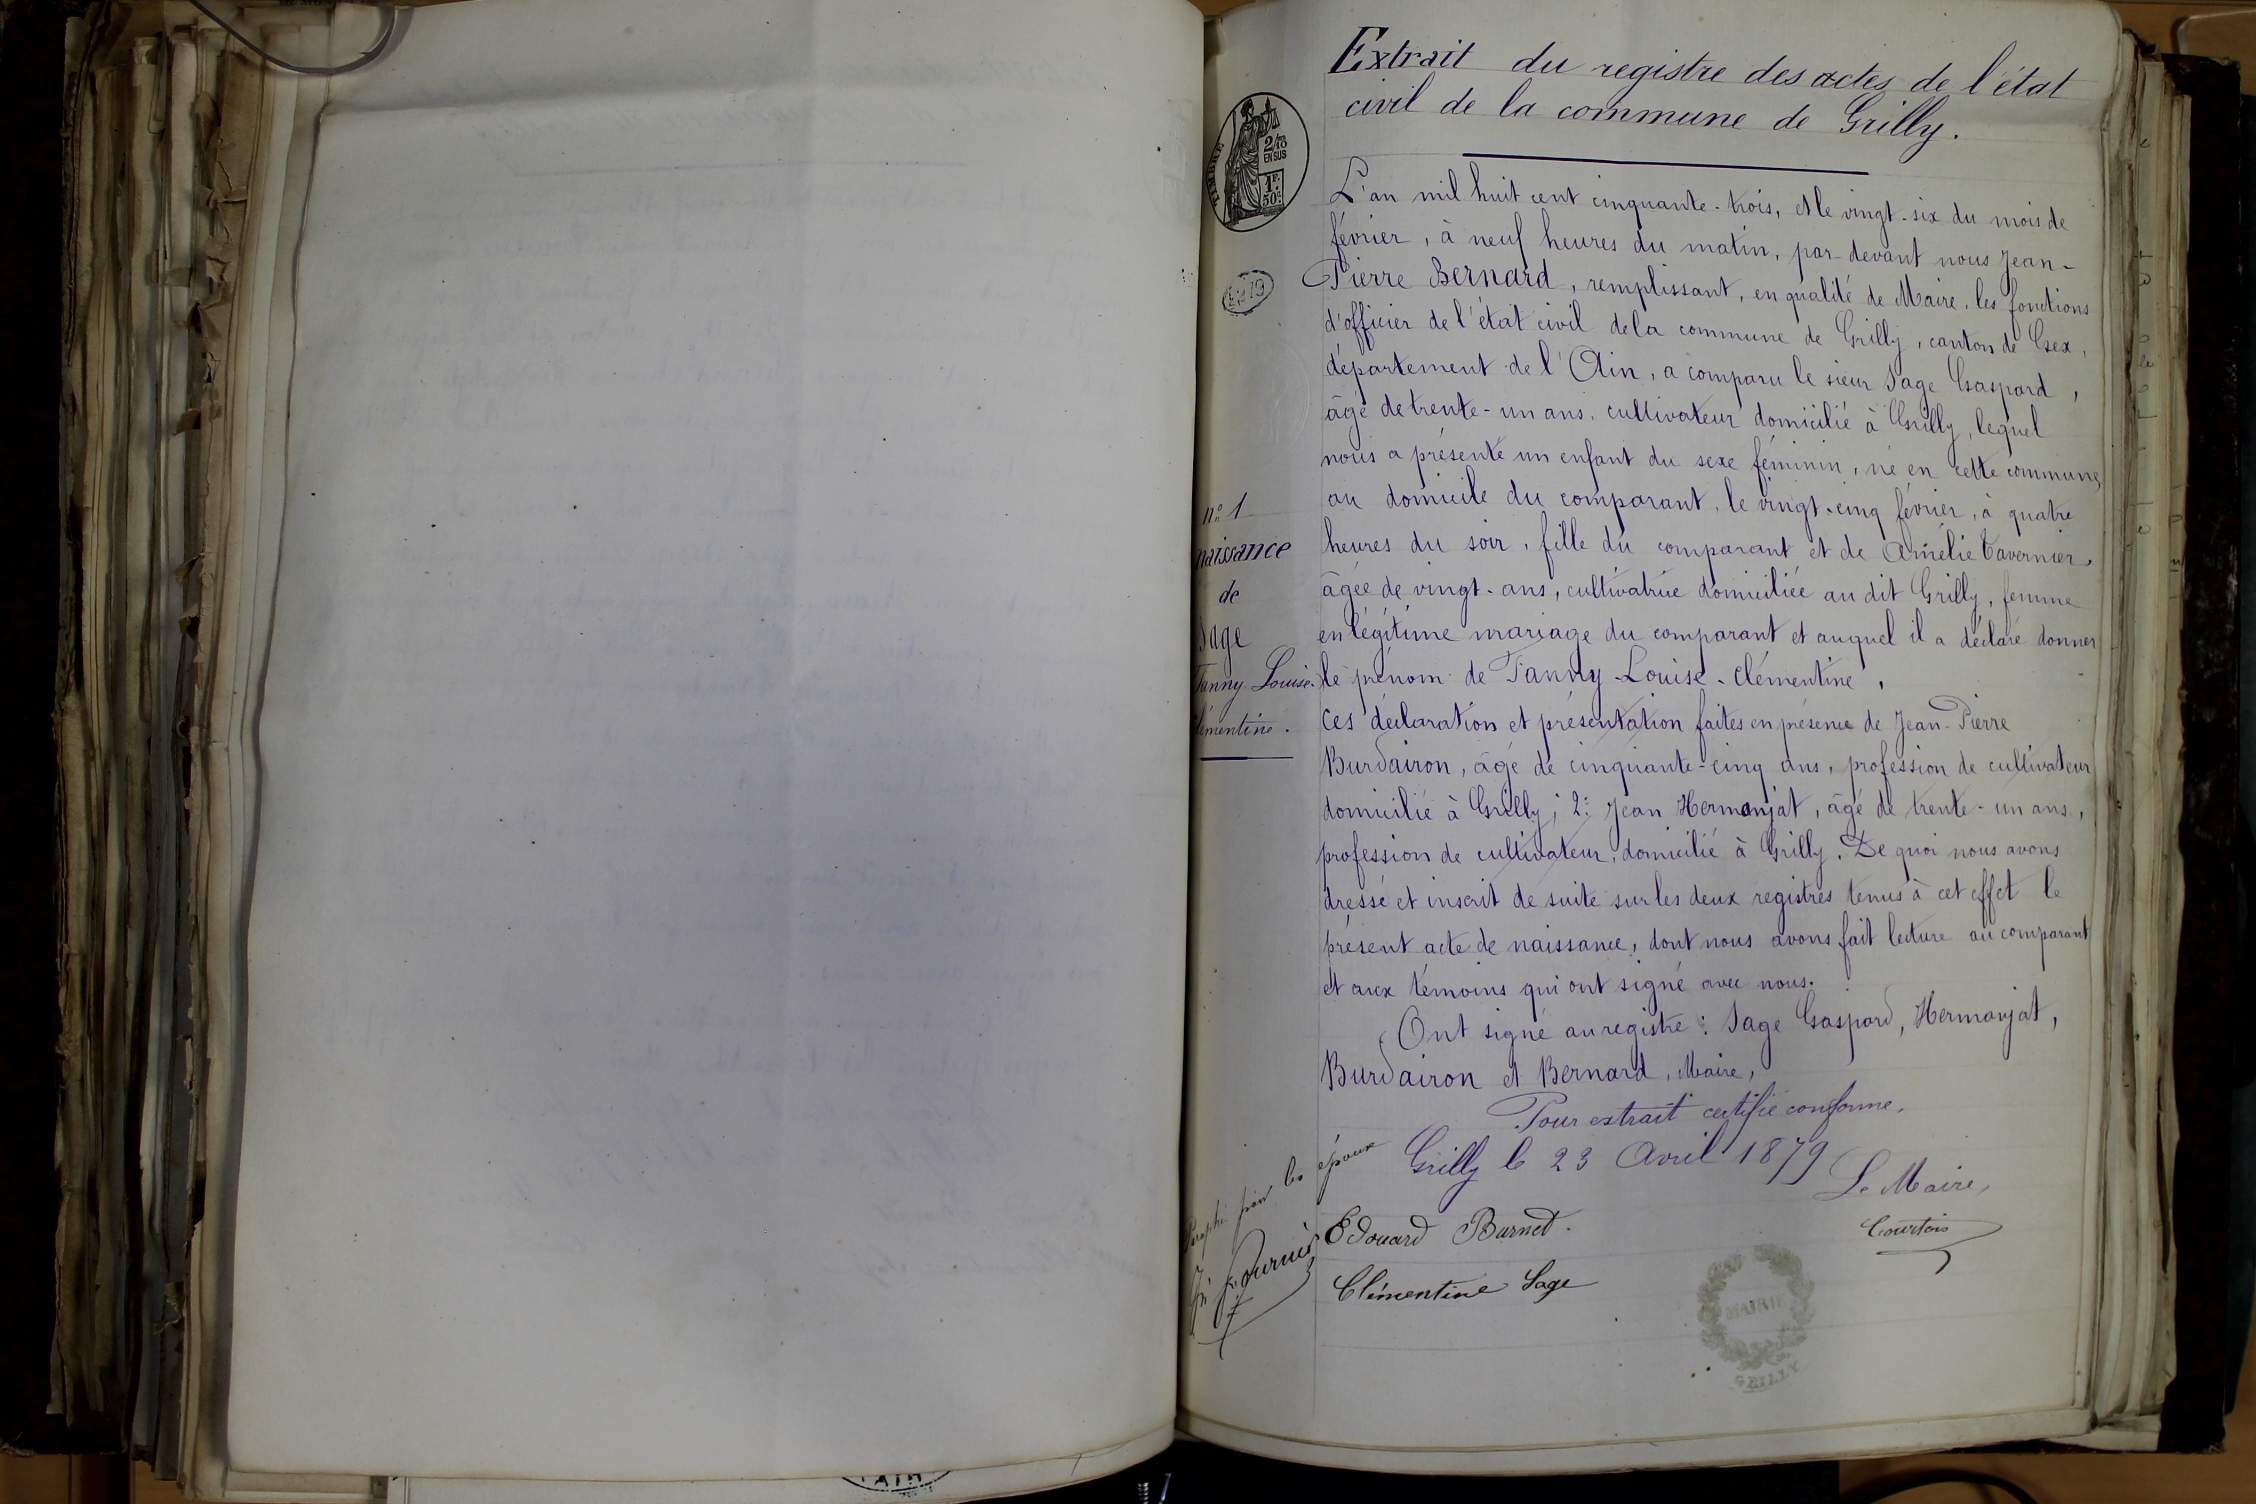 Extrait du registre des actes de l'état
civil de la commune de Grilly.
TIMBRE
2/10
EN SUS
1F.
50c.
L'an mil huit cent cinquante-trois, et le vingt-six du mois de
février, à neuf heures du matin, par-devant nous Jean-
Pierre Bernard, remplissant, en qualité de Maire, les fonctions
d'officier de l'état civil de la commune de Grilly, canton de Gex,
département de l'Ain, a comparu le sieur Sage Gaspard,
âgé de trente-un ans, cultivateur domicilié à Grilly, lequel
nous a présenté un enfant du sexe féminin, né en cette commune,
au domicile du comparant, le vingt-cinq février, à quatre
heures du soir, fille du comparant et de Amélie Tavernier,
âgée de vingt-ans, cultivatrice domiciliée au dit Grilly, femme
en légitime mariage du comparant et auquel il a déclaré donner
le prénom de Fanny-Louise-Clémentine.
ces déclaration et présentation faites en présence de Jean-Pierre
Burdairon, âgé de cinquante-cinq ans, profession de cultivateur
domicilié à Grilly; 2: Jean Hermanjat, âgé de trente-un ans,
profession de cultivateur, domicilié à Grilly. De quoi nous avons
dressé et inscrit de suite sur les deux registres tenus à cet effet le
présent acte de naissance, dont nous avons fait lecture au comparant
et aux témoins qui ont signé avec nous.
Ont signé au registre: Sage Gaspard, Hermanjat,
Burdairon et Bernard, Maire,
Pour extrait certifié conforme.
Grilly le 23 Avril 1879
Le Maire,
Courtois
n° 1
naissance
de
Sage
Fanny-Louise-
Clémentine.
Paraphé par les époux
Fournier
Edouard Burnet.
Clémentine Sage
MAIRIE
GRILLY
AIN